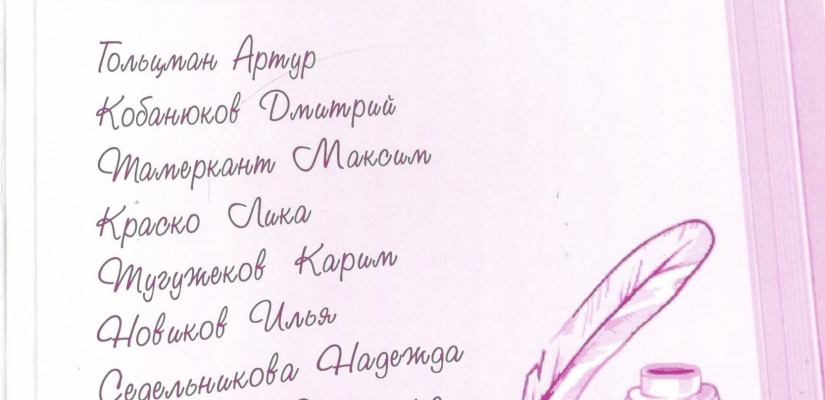 Гольцман Артур
Кобанюков Дмитрий
Тамеркант Максим
Краско Лика
Тугужеков Карим
Новиков Илья
Седельникова Надежда